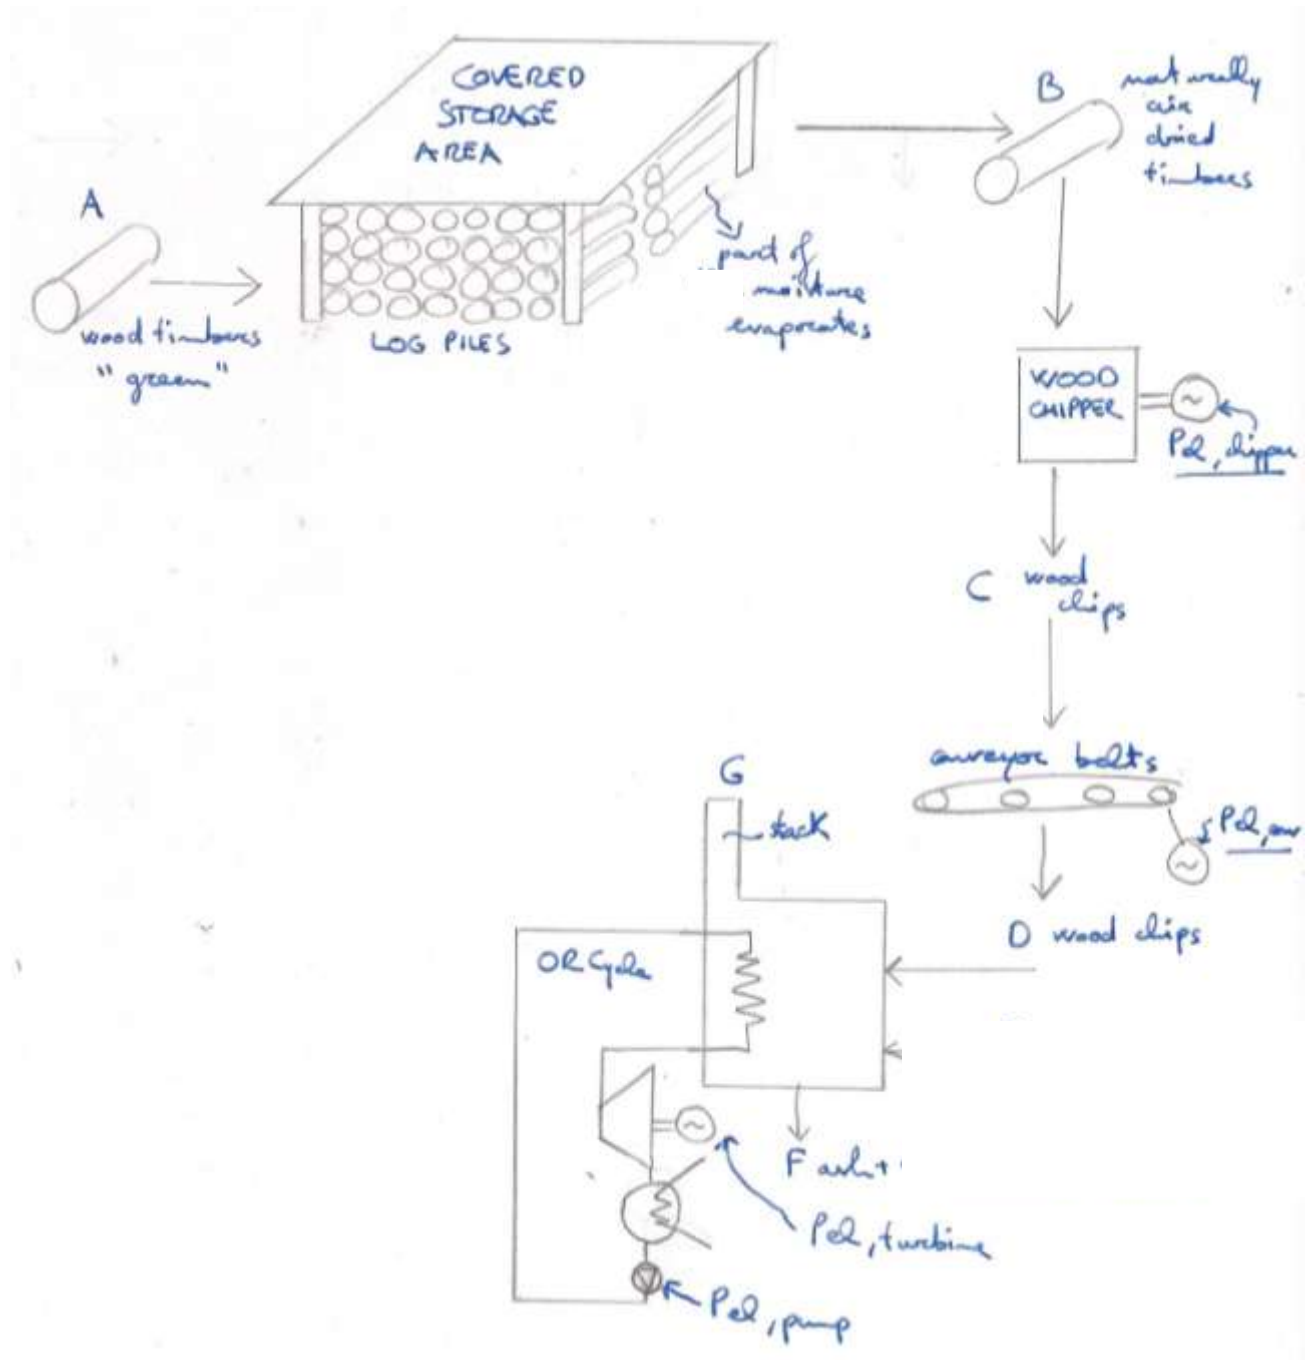 COVERED
STORAGE
AREA
A
wood timbers
"green"
LOG PILES
part of
moisture
evaporates
B
naturally
air
dried
timbers
WOOD
CHIPPER
Pel, chipper
C wood
chips
conveyor belts
Pel, conv
D wood chips
G
stack
ORCycle
F ash+
Pel, turbine
Pel, pump